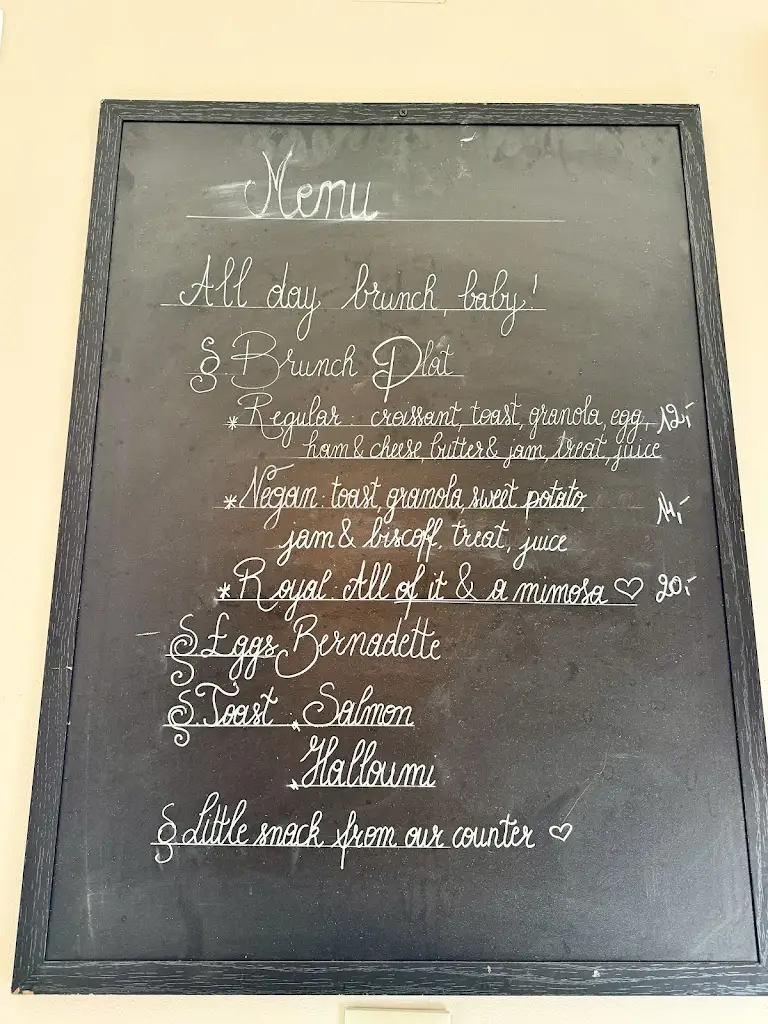 Menu
All day brunch, baby!
§ Brunch Plat
* Regular: croissant, toast, granola, egg, 12,-
ham & cheese, butter & jam, treat, juice
* Vegan: toast, granola, sweet potato, 14,-
jam & biscoff, treat, juice
* Royal: All of it & a mimosa ♡ 20,-
§ Eggs Bernadette
§ Toast * Salmon
* Halloumi
§ Little snack from our counter ♡